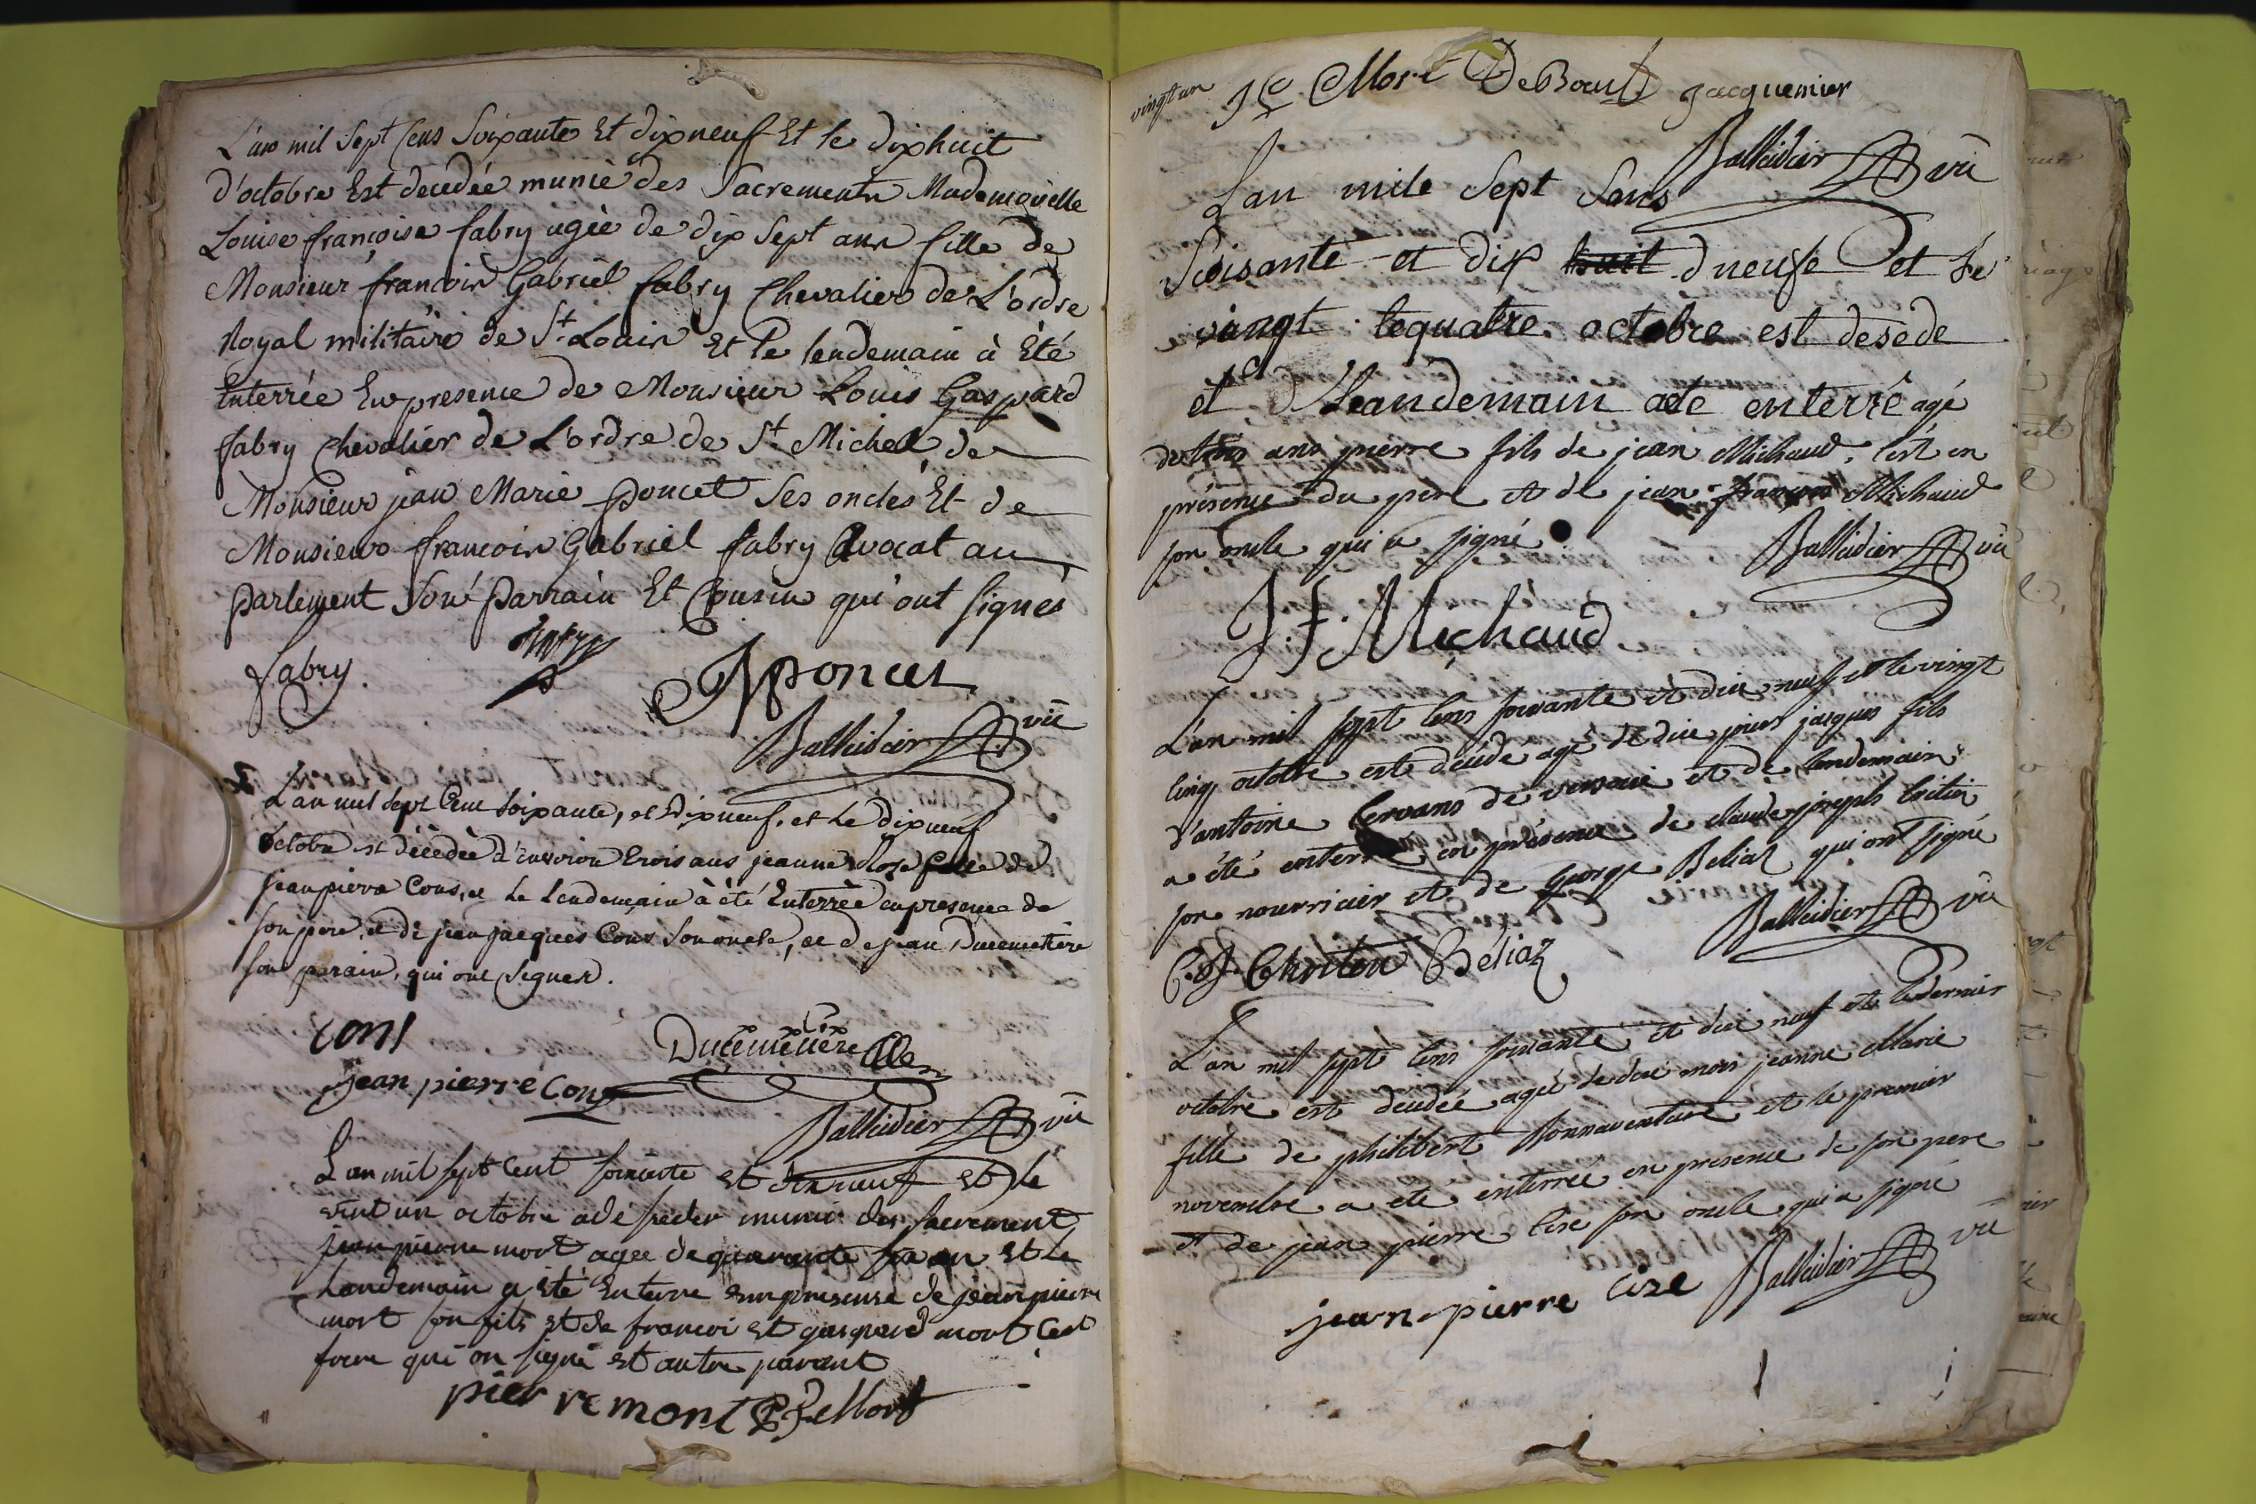 L'an mil Sept Cens Soixante Et dixneuf Et le dixhuit
d'octobre Est decédée munie des Sacrements Mademoiselle
Louise françoise fabry agèe de dix Sept ans fille de
Monsieur françois Gabriel fabry Chevalier de L'ordre
Royal militaire de St Louis Et le lendemain à Eté
Enterrée En presence de Monsieur Louis Gaspard
fabry Chevalier de L'ordre de St Michel de
Monsieur jean Marie Poncet Ses oncles Et de
Monsieur françois Gabriel fabry Avocat au
Parlement Son Parrain Et Cousin qui ont Signés
fabry. fabry Poncet
Balleidier vic
L'an mil sept Cent Soixante, et Dixneuf, et Le dixneuf
octobre est décèdée d'environ trois ans jeanne Rose fille de
jean pierre Cons, et Le Lendemain à été Enterrèe en presence de
son pere, et de jean jacques Cons son oncle, et de jean Ducemetiere
son parain, qui ont signer.
cons Ducemetiere
jean pierre Cons
Balleidier vic
L'an mil sept Cent soixante et dixneuf et le
vint un octobre a dé seder muni des sacrement
jean pierre mort agee de quarante an et le
Landemain a été Enterre enn presense de jean pierre
mort son fils et de francoi et gaspard mort Cest
frere qui on signé est autre parant
pierre mort Mort
vingt un Mort DeBoult jacquemier
Balleidier vic
L'an mile Sept Sans
Soisante et dix huit dneufe et le
vingt lequatre octobre est desede
et Leandemain aete enterré agé
de trois ans pierre fils de jean Michaud, c'est en
présence du pere et de jean françois Michaud
son oncle qui a signé
Balleidier vic
J. f. Michaud
L'an mil sept Cens soixante et dix neuf et le vingt
Cinq octobre est decédé agé de dix jours jacques fils
d'antoine Cervans de et de lendemain
a été enterré en présence de claude joseph Critin
son nourricier et de George Beliaz qui ont signé
Balleidier vic
C. J. Chriten Béliaz
L'an mil sept Cens soixante et dix neuf et le dernier
octobre est decedée agée de dix mois jeanne Marie
fille de philibert Bonnaventure et le premier
novembre a eté enterrée en presence de son pere
et de jean pierre Cise son oncle qui a signé
Balleidier vic
jean pierre Cise